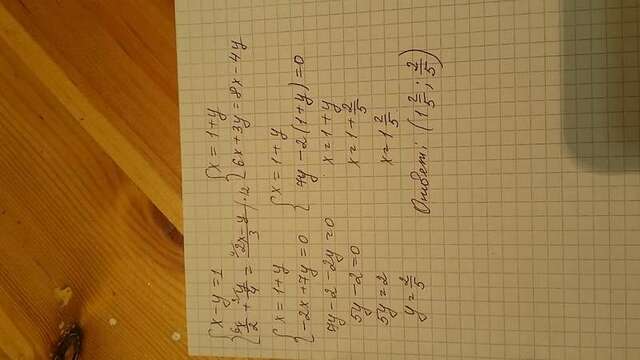 {x-y=1
{⁶x/2 + ³y/4 = ⁴2x-y/3 /·12
{x=1+y
{6x+3y=8x-4y
{x=1+y
{-2x+7y=0
{x=1+y
{7y-2(1+y)=0
7y-2-2y=0
5y-2=0
5y=2
y=2/5
x=1+y
x=1+2/5
x=1 2/5
Ответ: (1 2/5; 2/5)